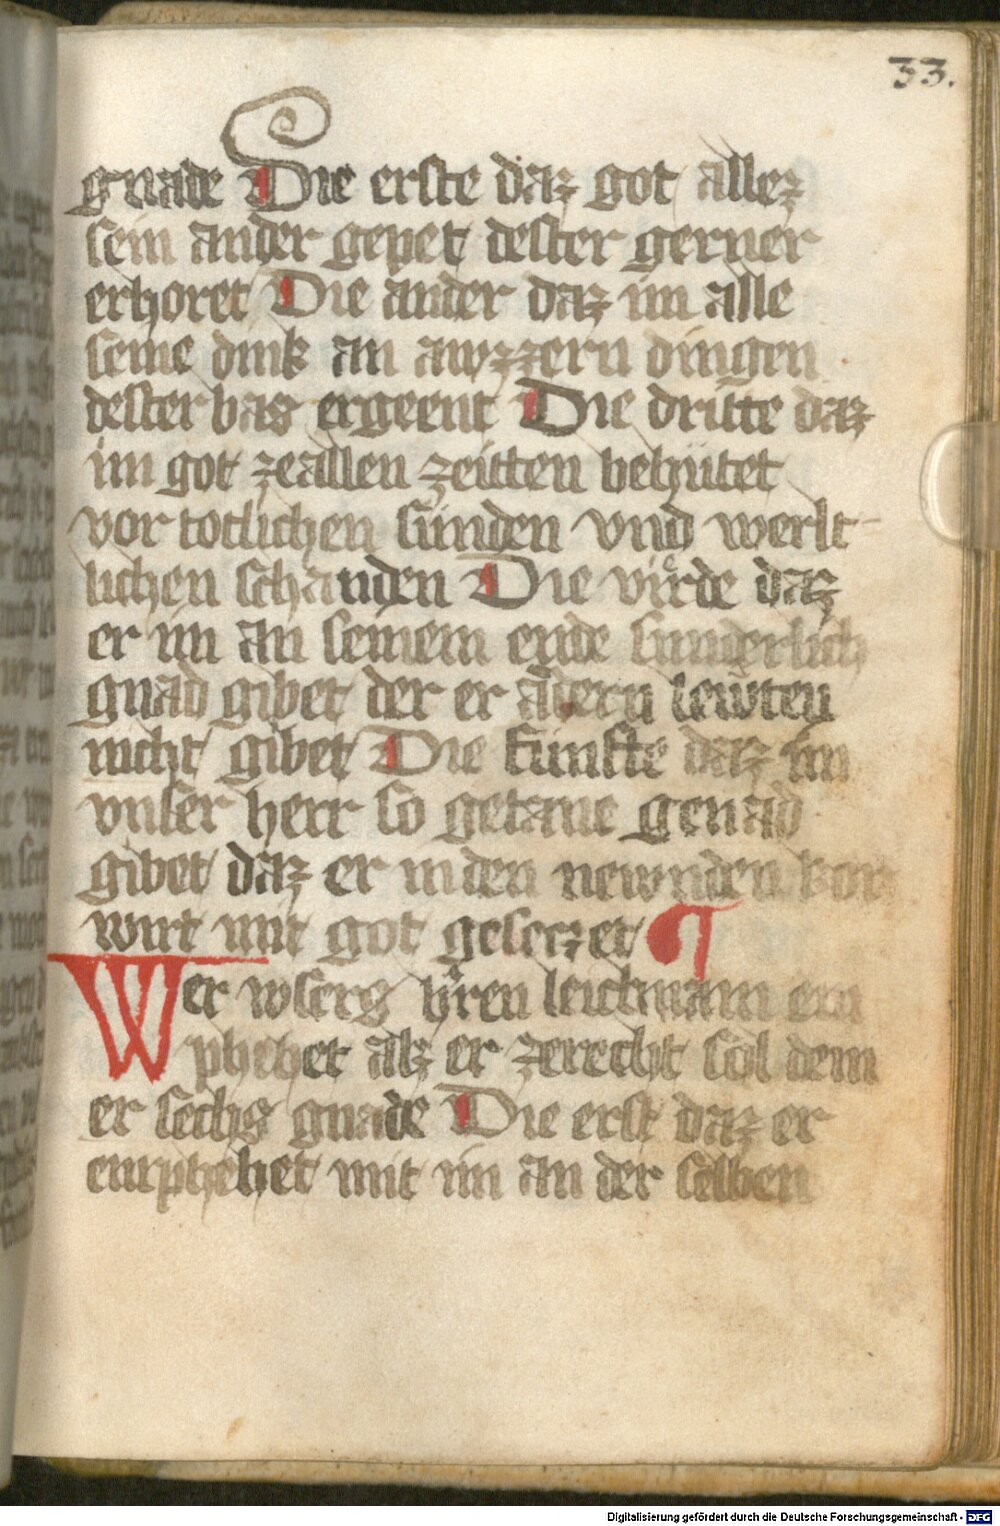 33.
gnade Die erste daz got allez
sein ander gepet dester gerner
erhoret Die ander daz im alle
seine dink an awzzern dingen
dester bas ergeent Die dritte daz
im got zeallen zeitten behutet
vor totlichen sunden vnd werlt
lichen schanden Die virde daz
er im an seinem ende sunderlich
gnad gibet der er andern lewten
nicht gibet Die funfte daz im
vnser herr so getane genad
gibet daz er inden newnden kor
wirt mit got gesetzet
Wer vnsers herren leichnam em
phehet alz er zerecht sol dem
er sechs gnade Die erst daz er
enphehet mit im an der selben
Digitalisierung gefördert durch die Deutsche Forschungsgemeinschaft - DFG